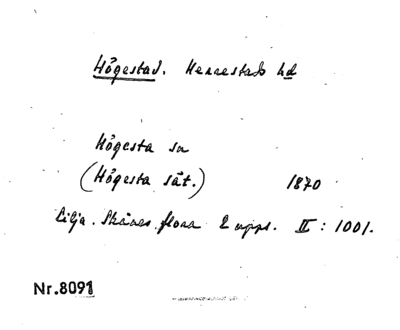 Högestad. Herrestads hd
Högesta sn
(Högesta såt.) 1870
Lilja. Skånes flora 2 uppl. II : 1001.
Nr.8091